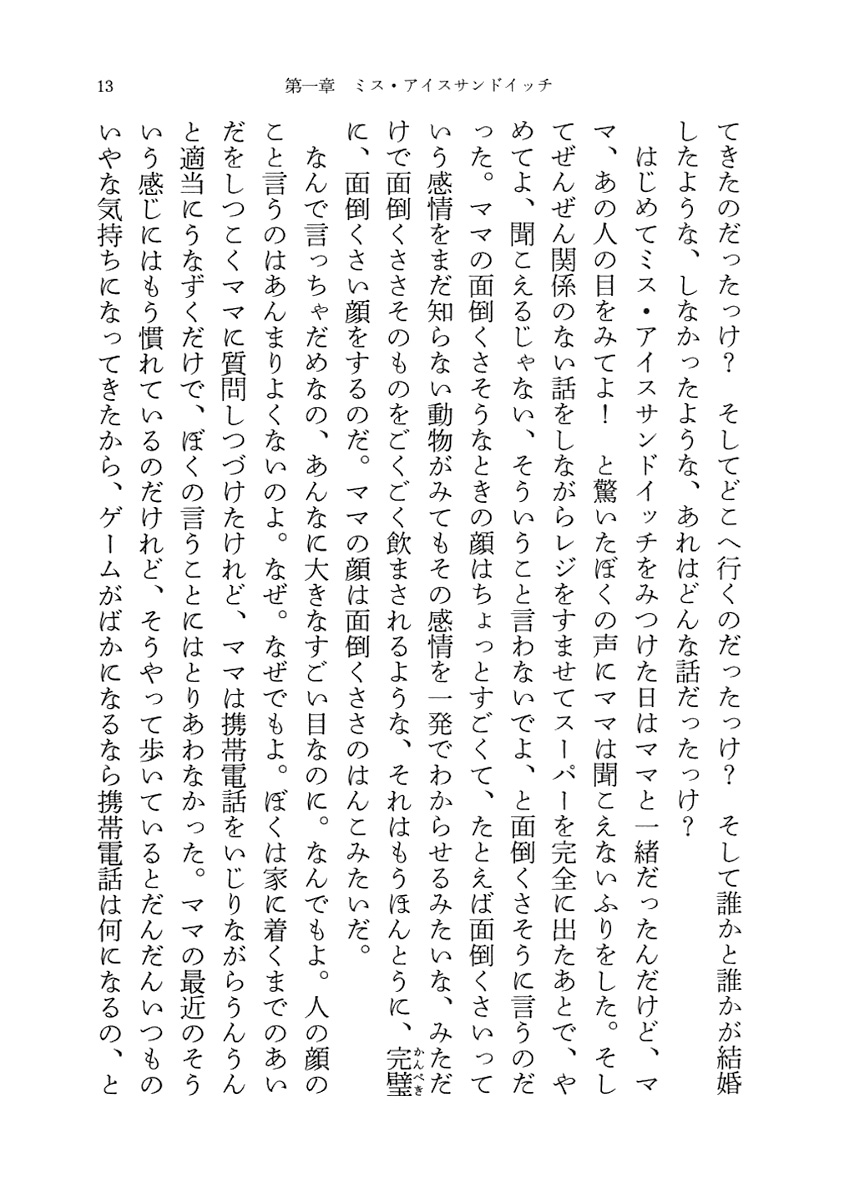 13
第一章　ミス・アイスサンドイッチ
てきたのだったっけ？　そしてどこへ行くのだったっけ？　そして誰かと誰かが結婚
したような、しなかったような、あれはどんな話だったっけ？
　はじめてミス・アイスサンドイッチをみつけた日はママと一緒だったんだけど、マ
マ、あの人の目をみてよ！　と驚いたぼくの声にママは聞こえないふりをした。そし
てぜんぜん関係のない話をしながらレジをすませてスーパーを完全に出たあとで、や
めてよ、聞こえるじゃない、そういうこと言わないでよ、と面倒くさそうに言うのだ
った。ママの面倒くさそうなときの顔はちょっとすごくて、たとえば面倒くさいって
いう感情をまだ知らない動物がみてもその感情を一発でわからせるみたいな、みただ
けで面倒くささそのものをごくごく飲まされるような、それはもうほんとうに、完璧かんぺき
に、面倒くさい顔をするのだ。ママの顔は面倒くささのはんこみたいだ。
　なんで言っちゃだめなの、あんなに大きなすごい目なのに。なんでもよ。人の顔の
こと言うのはあんまりよくないのよ。なぜ。なぜでもよ。ぼくは家に着くまでのあい
だをしつこくママに質問しつづけたけれど、ママは携帯電話をいじりながらうんうん
と適当にうなずくだけで、ぼくの言うことにはとりあわなかった。ママの最近のそう
いう感じにはもう慣れているのだけれど、そうやって歩いているとだんだんいつもの
いやな気持ちになってきたから、ゲームがばかになるなら携帯電話は何になるの、と